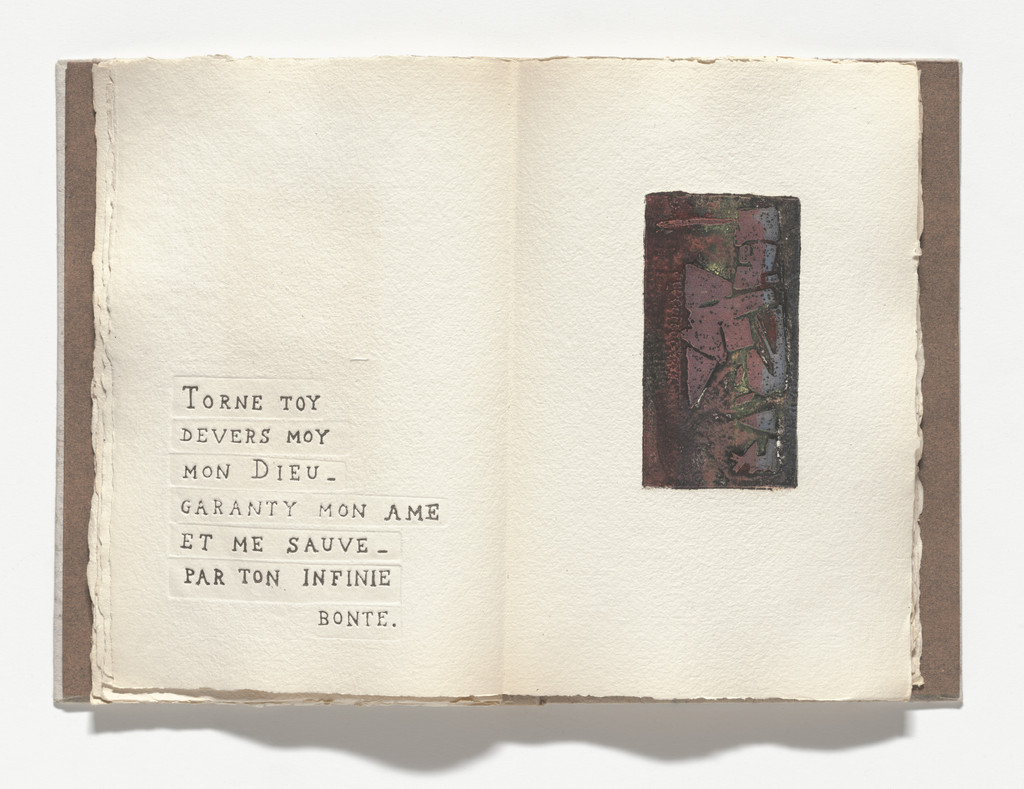 TORNE TOY
DEVERS MOY
MON DIEU_
GARANTY MON AME
ET ME SAUVE_
PAR TON INFINIE
BONTE.